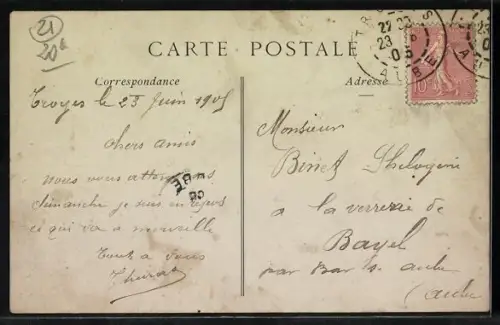 21
20f
CARTE POSTALE
Correspondance
Adresse
TROYES
22 23
23 6
05
AUBE
10c
Troyes le 23 Juin 1905
chers amis
nous vous attendons
dimanche je suis en repos
ce qui va a merveille
Tout a vous
Monsieur
Binet
a la verrerie de
Bayel
par Bar s. aube
(aube